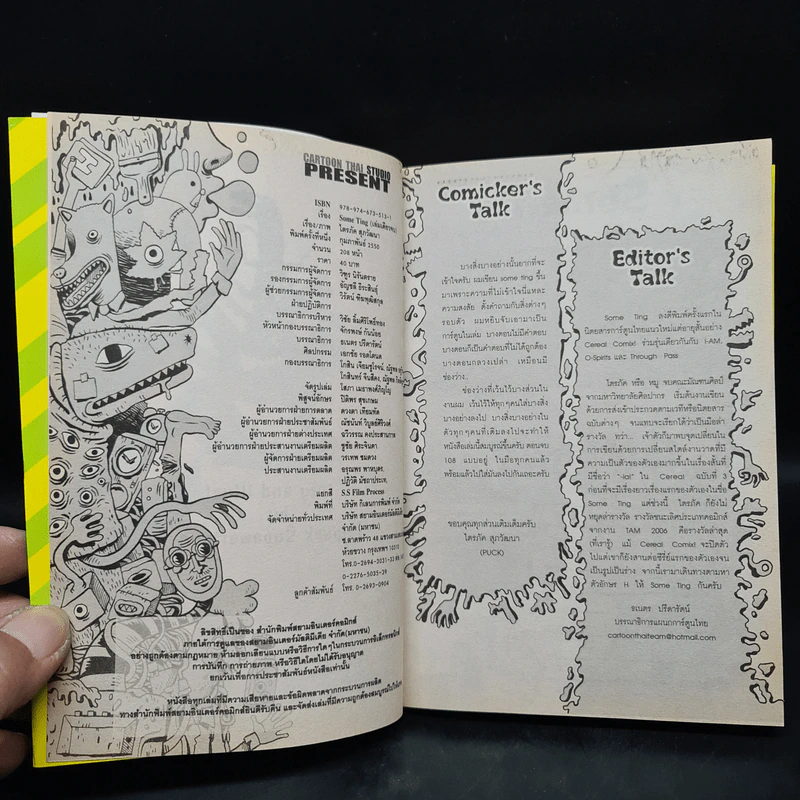 CARTOON THAI STUDIO
PRESENT
ISBN 978-974-673-513-1
เรื่อง Some Ting (เล่มเดียวจบ)
เรื่อง/ภาพ ไตรภัค สุภวัฒนา
พิมพ์ครั้งที่หนึ่ง กุมภาพันธ์ 2550
จำนวน 208 หน้า
ราคา 40 บาท
กรรมการผู้จัดการ วิฑูร นิรันตราย
รองกรรมการผู้จัดการ อัญชลี ธีระสินธุ์
ผู้ช่วยกรรมการผู้จัดการ วิรัตน์ พิษณุพัฒิกุล
ฝ่ายปฏิบัติการ
บรรณาธิการบริหาร วิชัย ลิ้มศิริโพธิ์ทอง
หัวหน้ากองบรรณาธิการ จักรพงษ์ กันน้อย
บรรณาธิการ ธเนตร ปรีดารัตน์
ศิลปกรรม เอกชัย รอดโตนด
กองบรรณาธิการ โกสิน
จัดรูปเล่ม โสภา
พิสูจน์อักษร ปิติพร สุขเกษม
ผู้อำนวยการฝ่ายการตลาด ดวงตา เทียมทัด
ผู้อำนวยการฝ่ายประชาสัมพันธ์ ณัชนันท์ วิบูลย์ศิริวงศ์
ผู้อำนวยการฝ่ายต่างประเทศ ฉวีวรรณ คงประสานกาล
ผู้อำนวยการฝ่ายประสานงานเตรียมผลิต ชูชัย ศิระจินดา
ผู้จัดการฝ่ายเตรียมผลิต วรเทพ ชมดวง
ประสานงานเตรียมผลิต อรุณพร พาหบุตร,
ปฏิวัติ มัชฌาประเท.
แยกสี S.S Film Process
พิมพ์ที่ บริษัท กิเลนการพิมพ์ จำกัด
จัดจำหน่ายทั่วประเทศ บริษัท สยามอินเตอร์มัลติมีเดีย
จำกัด (มหาชน)
ซ.ลาดพร้าว 48 แขวงสามเสนนอก
ห้วยขวาง กรุงเทพฯ 10310
โทร.0-2694-3031-32
0-2276-5035-39
ลูกค้าสัมพันธ์ โทร. 0-2693-0904
ลิขสิทธิ์เป็นของ สำนักพิมพ์สยามอินเตอร์คอมิกส์
ภายใต้การดูแลของสยามอินเตอร์มัลติมีเดีย จำกัด(มหาชน)
อย่างถูกต้องตามกฎหมาย ห้ามลอกเลียนแบบหรือวิธีการใดๆในกระบวนการอิเล็กทรอนิกส์
การบันทึก การถ่ายภาพ หรือวิธีใดโดยไม่ได้รับอนุญาต
ยกเว้นเพื่อการประชาสัมพันธ์หนังสือเท่านั้น
หนังสือทุกเล่มที่มีความเสียหายและข้อผิดพลาดจากกระบวนการผลิต
ทางสำนักพิมพ์สยามอินเตอร์คอมิกส์ยินดีรับคืน และจัดส่งเล่มที่มีความถูกต้องสมบูรณ์ไปให้
Comicker's
Talk
บางสิ่งบางอย่างนั้นยากที่จะ
เข้าใจครับ ผมเขียน some ting ขึ้น
มาเพราะความที่ไม่เข้าใจนี่แหละ
ความสงสัย ตั้งคำถามกับสิ่งต่างๆ
รอบตัว ผมหยิบจับเอามาเป็น
การ์ตูนในเล่ม บางตอนไม่มีคำตอบ
บางตอนก็เป็นคำตอบที่ไม่ได้ถูกต้อง
บางตอนกลวงเปล่า เหมือนมี
ช่องว่าง..
ช่องว่างที่เว้นไว้บางส่วนใน
งานผม เว้นไว้ให้ทุกๆคนใส่บางสิ่ง
บางอย่างลงไป บางสิ่งบางอย่างใน
ตัวทุกๆคนที่เติมลงไปจะทำให้
หนังสือเล่มนี้สมบูรณ์ขึ้นครับ ตอนจบ
108 แบบอยู่ ในมือทุกคนแล้ว
พร้อมแล้วไปใส่มันลงไปกันเถอะครับ
ขอบคุณทุกส่วนเติมเต็มครับ
ไตรภัค สุภวัฒนา
(PUCK)
Editor's
Talk
Some Ting ลงตีพิมพ์ครั้งแรกใน
นิตยสารการ์ตูนไทยแนวใหม่แต่อายุสั้นอย่าง
Cereal Comix! ร่วมรุ่นเดียวกันกับ I-AM,
O-Spirits และ Through Pass
ไตรภัค หรือ หมู จบคณะมัณฑนศิลป์
จากมหาวิทยาลัยศิลปากร เริ่มต้นงานเขียน
ด้วยการส่งเข้าประกวดตามเวทีหรือนิตยสาร
ฉบับต่างๆ จนแทบจะเรียกได้ว่าเป็นมือล่า
รางวัล ทว่า.. เจ้าตัวก็มาพบจุดเปลี่ยนใน
การเขียนด้วยการเปลี่ยนสไตล์งานวาดที่มี
ความเป็นตัวของตัวเองมากขึ้นในเรื่องสั้นที่
มีชื่อว่า "-ไอ่" ใน Cereal ฉบับที่ 3
ก่อนที่จะมีเรื่องยาวเรื่องแรกของตัวเองในชื่อ
Some Ting แต่ช่วงนี้ ไตรภัค ก็ยังไม่
หยุดล่ารางวัล รางวัลชนะเลิศประเภทคอมิกส์
จากงาน TAM 2006 คือรางวัลล่าสุด
(ที่เรารู้) แม้ Cereal Comix! จะปิดตัว
ไปแต่เขาก็ยังสานต่อซีรี่ย์แรกของตัวเองจน
เป็นรูปเป็นร่าง จากนี้เรามาเดินทางตามหา
ตัวอักษร H ให้ Some Ting กันครับ
ธเนตร ปรีดารัตน์
บรรณาธิการแผนกการ์ตูนไทย
cartoonthaiteam@hotmail.com